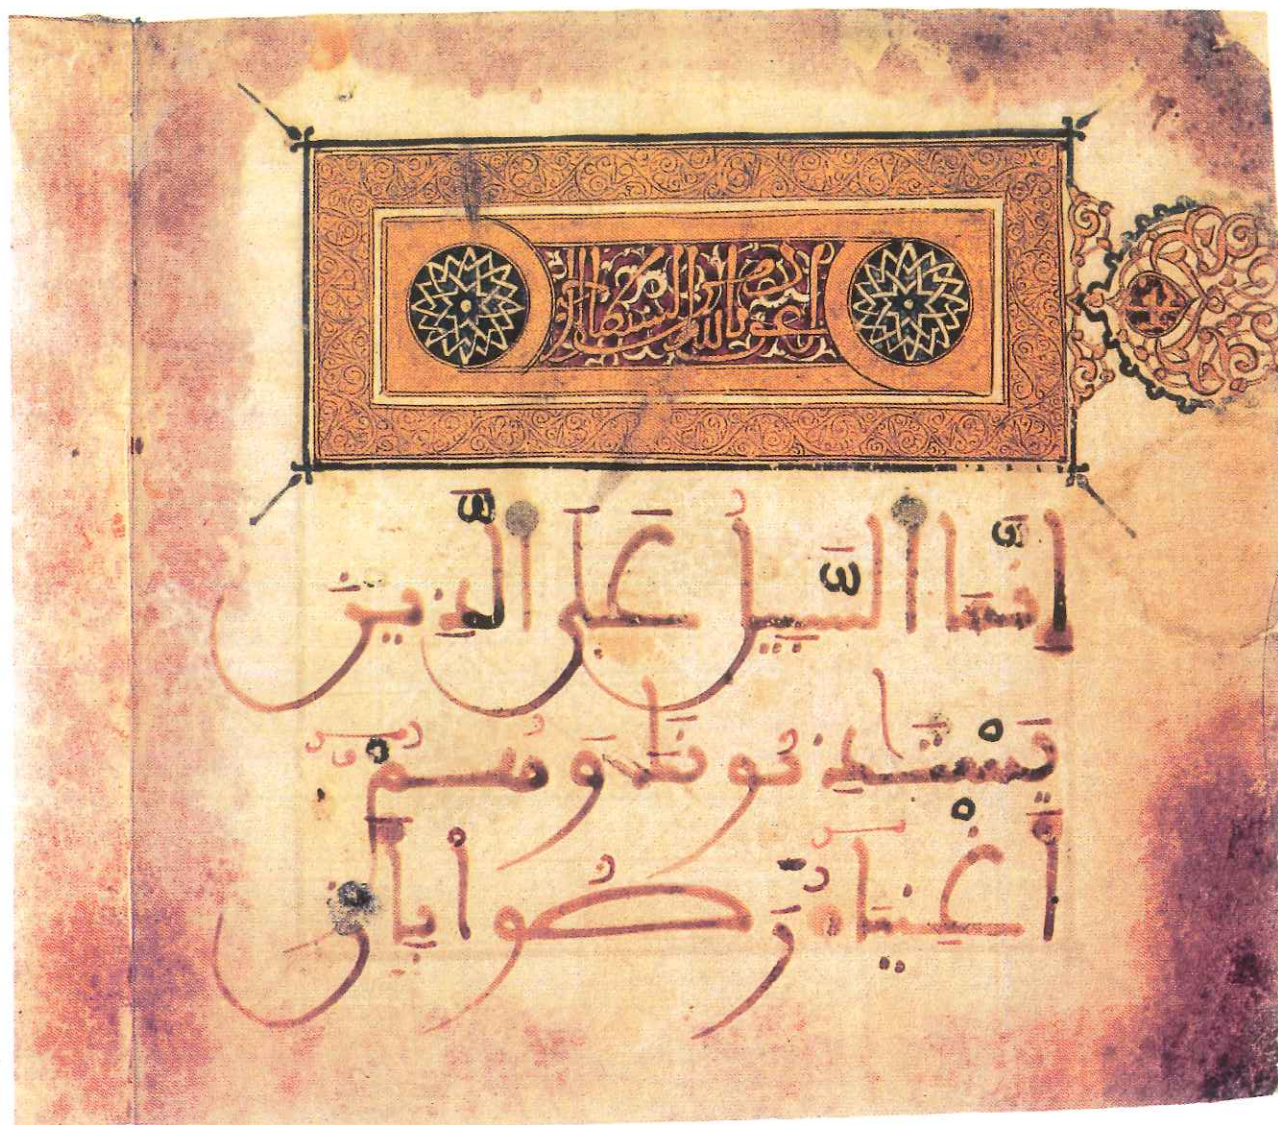 أعوذ بالله من الشيطان الرجيم
إِنَّمَا ٱلسَّبِيلُ عَلَى ٱلَّذِينَ
يَسْتَـٔذِنُونَكَ وَهُمُۥٓ
أَغْنِيَآءُ رَضُوا۟ بِأَن